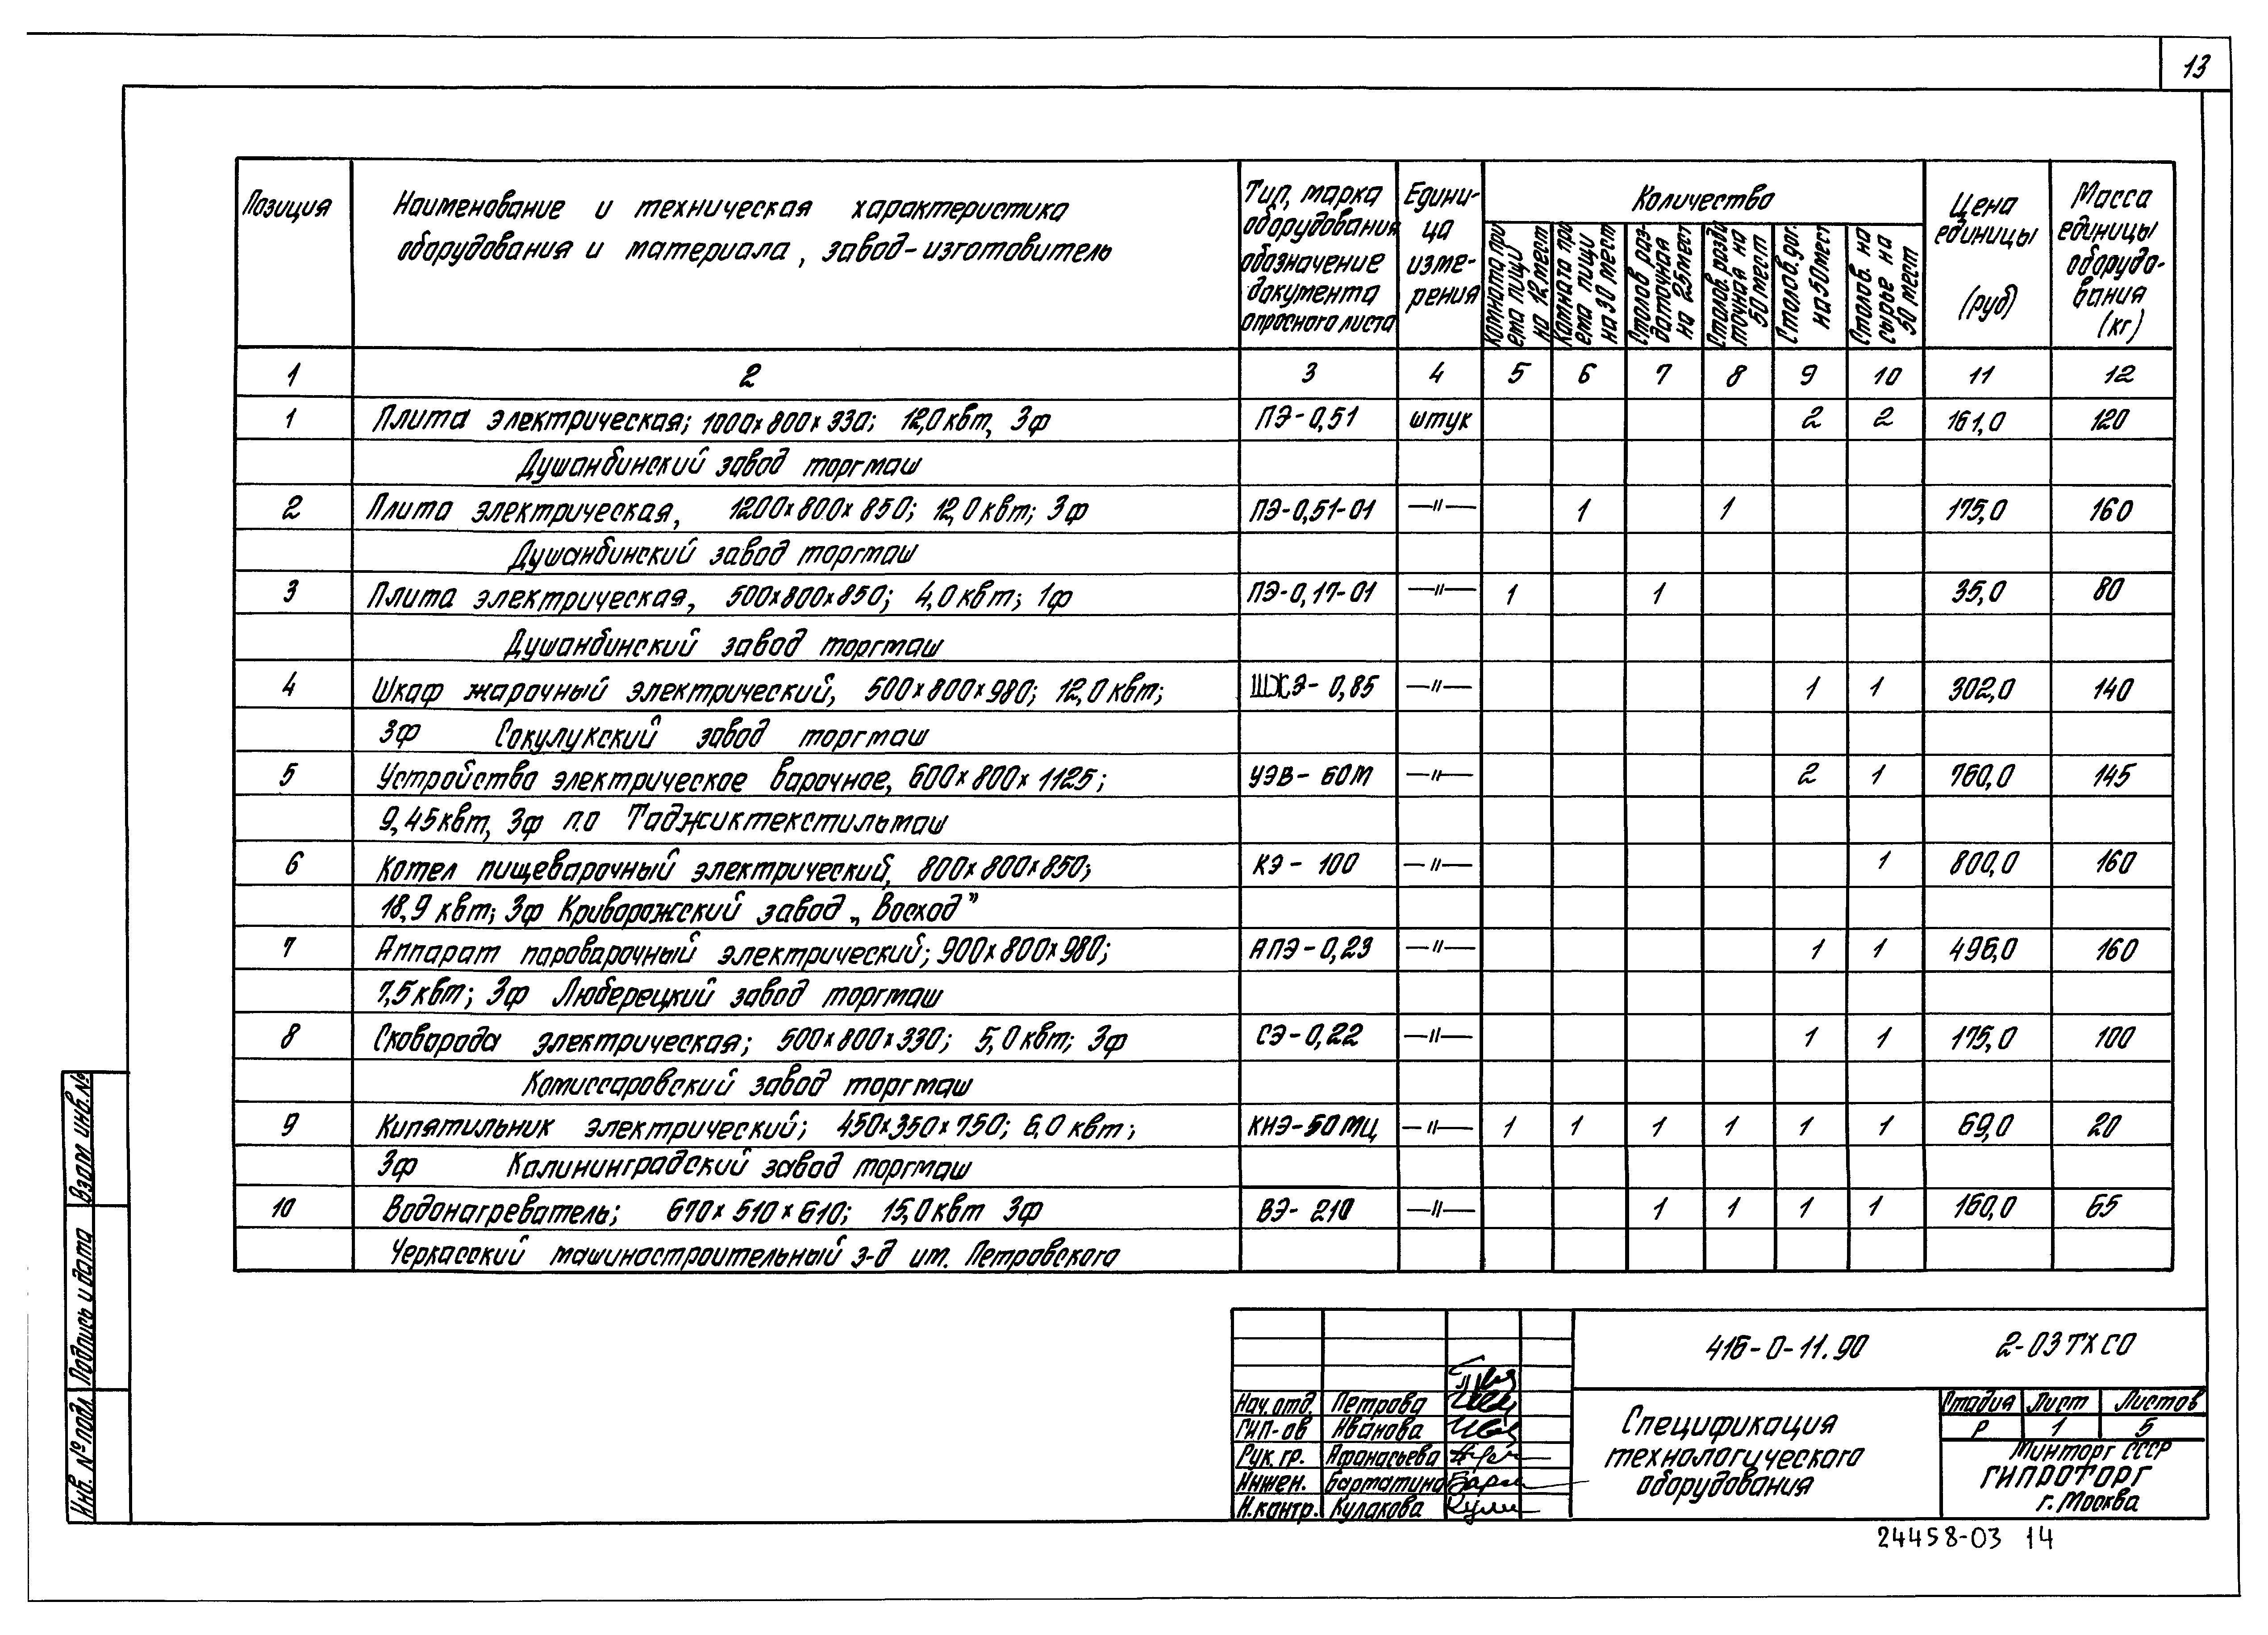 13
Позиция
Наименование и техническая характеристика
оборудования и материала, завод-изготовитель
Тип, марка
оборудования
обозначение
документа
опросного листа
Едини-
ца
изме-
рения
Количество
Комната при
ема пищи
на 12 мест
Комната при
ема пищи
на 30 мест
Столов раз-
даточная
на 25 мест
Столов. разда
точная на
50 мест
Столов. дог.
на 50 мест
Столов. на
сырье на
50 мест
Цена
единицы
(руб)
Масса
единицы
оборудо-
вания
(кг)
1 2 3 4 5 6 7 8 9 10 11 12
1 Плита электрическая; 1000х800х330; 12,0 квт, 3ф ПЭ-0,51 штук 2 2 161,0 120
Душанбинский завод торгмаш
2 Плита электрическая, 1200х800х850; 12,0 квт; 3ф ПЭ-0,51-01 —"— 1 1 175,0 160
Душанбинский завод торгмаш
3 Плита электрическая, 500х800х850; 4,0 квт; 1ф ПЭ-0,17-01 —"— 1 1 35,0 80
Душанбинский завод торгмаш
4 Шкаф жарочный электрический, 500х800х980; 12,0 квт; ШЖЭ-0,85 —"— 1 1 302,0 140
3ф Сокулукский завод торгмаш
5 Устройство электрическое варочное, 600х800х1125; УЭВ-60М —"— 2 1 760,0 145
9,45 квт, 3ф п.о Таджиктекстильмаш
6 Котел пищеварочный электрический, 800х800х850; КЭ-100 —"— 1 800,0 160
18,9 квт; 3ф Криворожский завод „Восход"
7 Аппарат пароварочный электрический; 900х800х980; АПЭ-0,23 —"— 1 1 496,0 160
7,5 квт; 3ф Люберецкий завод торгмаш
8 Сковорода электрическая; 500х800х330; 5,0 квт; 3ф СЭ-0,22 —"— 1 1 175,0 100
Комиссаровский завод торгмаш
9 Кипятильник электрический; 450х350х750; 6,0 квт; КНЭ-50 МЦ —"— 1 1 1 1 1 1 69,0 20
3ф Калининградский завод торгмаш
10 Водонагреватель; 670х510х610; 15,0 квт 3ф ВЭ-210 —"— 1 1 1 1 160,0 65
Черкасский машиностроительный з-д им. Петровского
Взам инв.№
Подпись и дата
Инв. № подл
416-0-11.90 2-03 ТХ СО
Нач. отд. Петрова
ГИП-ов Иванова
Рук. гр. Афанасьева
Инжен. Бартатина
Н. контр. Кулакова
Спецификация
технологического
оборудования
Стадия Лист Листов
Р 1 5
Минторг СССР
ГИПРОТОРГ
г. Москва
24458-03 14